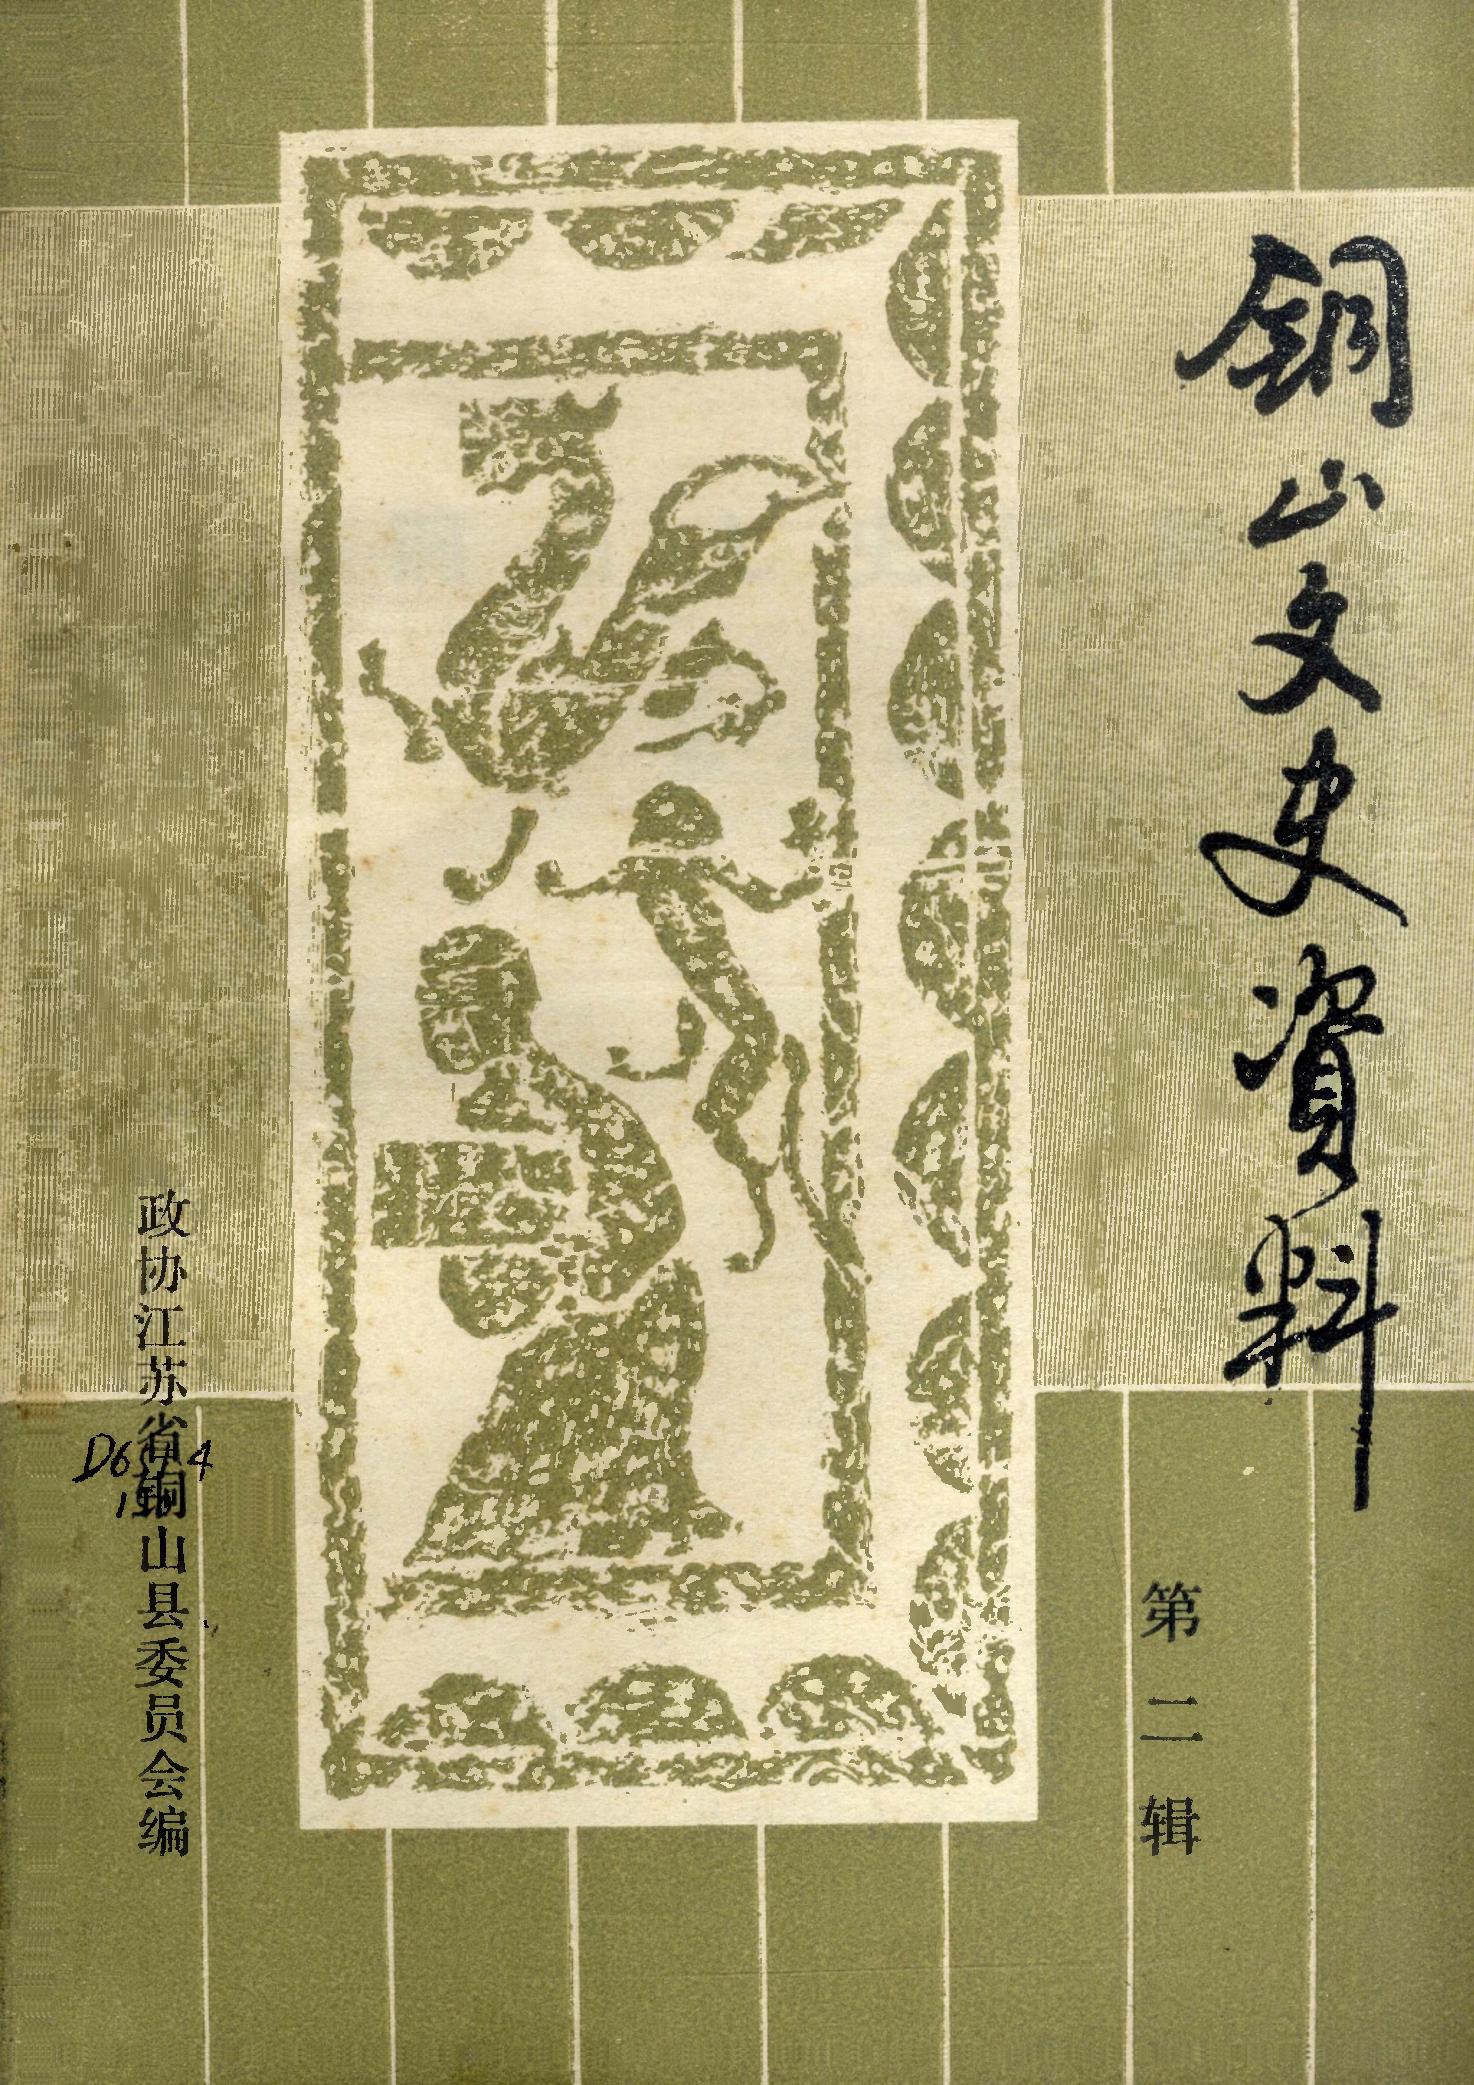 銅山文史資料
第二辑
政协江苏省铜山县委员会编